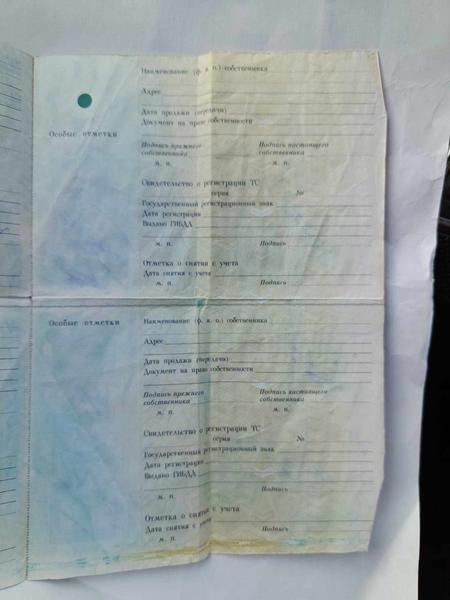 Наименование (ф. и. о.) собственника
Адрес
Дата продажи (передачи)
Документ на право собственности
Особые отметки
Подпись прежнего собственника
Подпись настоящего собственника
м. п.
м. п.
Свидетельство о регистрации ТС
серия №
Государственный регистрационный знак
Дата регистрации
Выдано ГИБДД
м. п. Подпись
Отметка о снятии с учета
Дата снятия с учета
м. п. Подпись
Особые отметки
Наименование (ф. и. о.) собственника
Адрес
Дата продажи (передачи)
Документ на право собственности
Подпись прежнего собственника
Подпись настоящего собственника
м. п.
м. п.
Свидетельство о регистрации ТС
серия №
Государственный регистрационный знак
Дата регистрации
Выдано ГИБДД
м. п. Подпись
Отметка о снятии с учета
Дата снятия с учета
м. п. Подпись